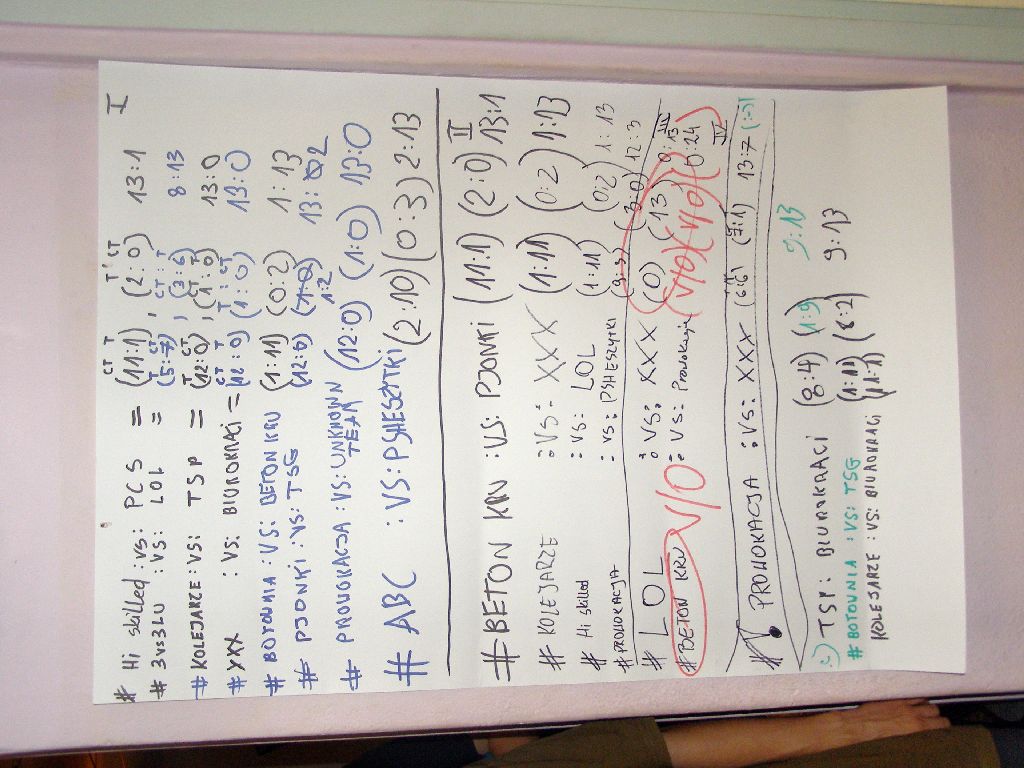 I
# Hi skilled :vs: PCS = (11:1), (2:0) 13:1
CT T T CT
# 3vs3LU :VS: LOL = (5:7), (3:6) 8:13
T CT CT T
# KOLEJARZE :VS: TSP = (12:0), (1:0) 13:0
T CT CT T
# XXX :VS: BIUROKRACI = (12:0) (1:0) 13:0
# BOTOWNIA :VS: BETON KRU (1:11) (0:2) 1:13
# PJONKI :VS: TSG (12:0) (1:0) 1:2 13:02
# PROWOKACJA :VS: UNKNOWN TEAM (12:0) (1:0) 13:0
# ABC :VS: PSHESZYTKI (2:10) (0:3) 2:13
II
# BETON KRU :VS: PJONKI (11:1) (2:0) 13:1
# KOLEJARZE :VS: XXX (1:11) (0:2) 1:13
# Hi skilled :VS: LOL (1:11) (0:2) 1:13
# PROWOKACJA :VS: PSHESZYTKI (9:3) (3:0) 12:3
III
# LOL :VS: XXX (0) (13) 0:13
# BETON KRU V/O :VS: Prowokacja (V/O) (V/O) 0:24
IV
# PROWOKACJA :VS: XXX (6:6) (7:1) 13:7 (:-)
:) TSP : BIUROKRACI (8:4) (1:9) 9:13
# BOTOWNIA :VS: TSG (1:11)
KOLEJARZE :VS: BIUROKRACI (11:1) (8:2) 9:13